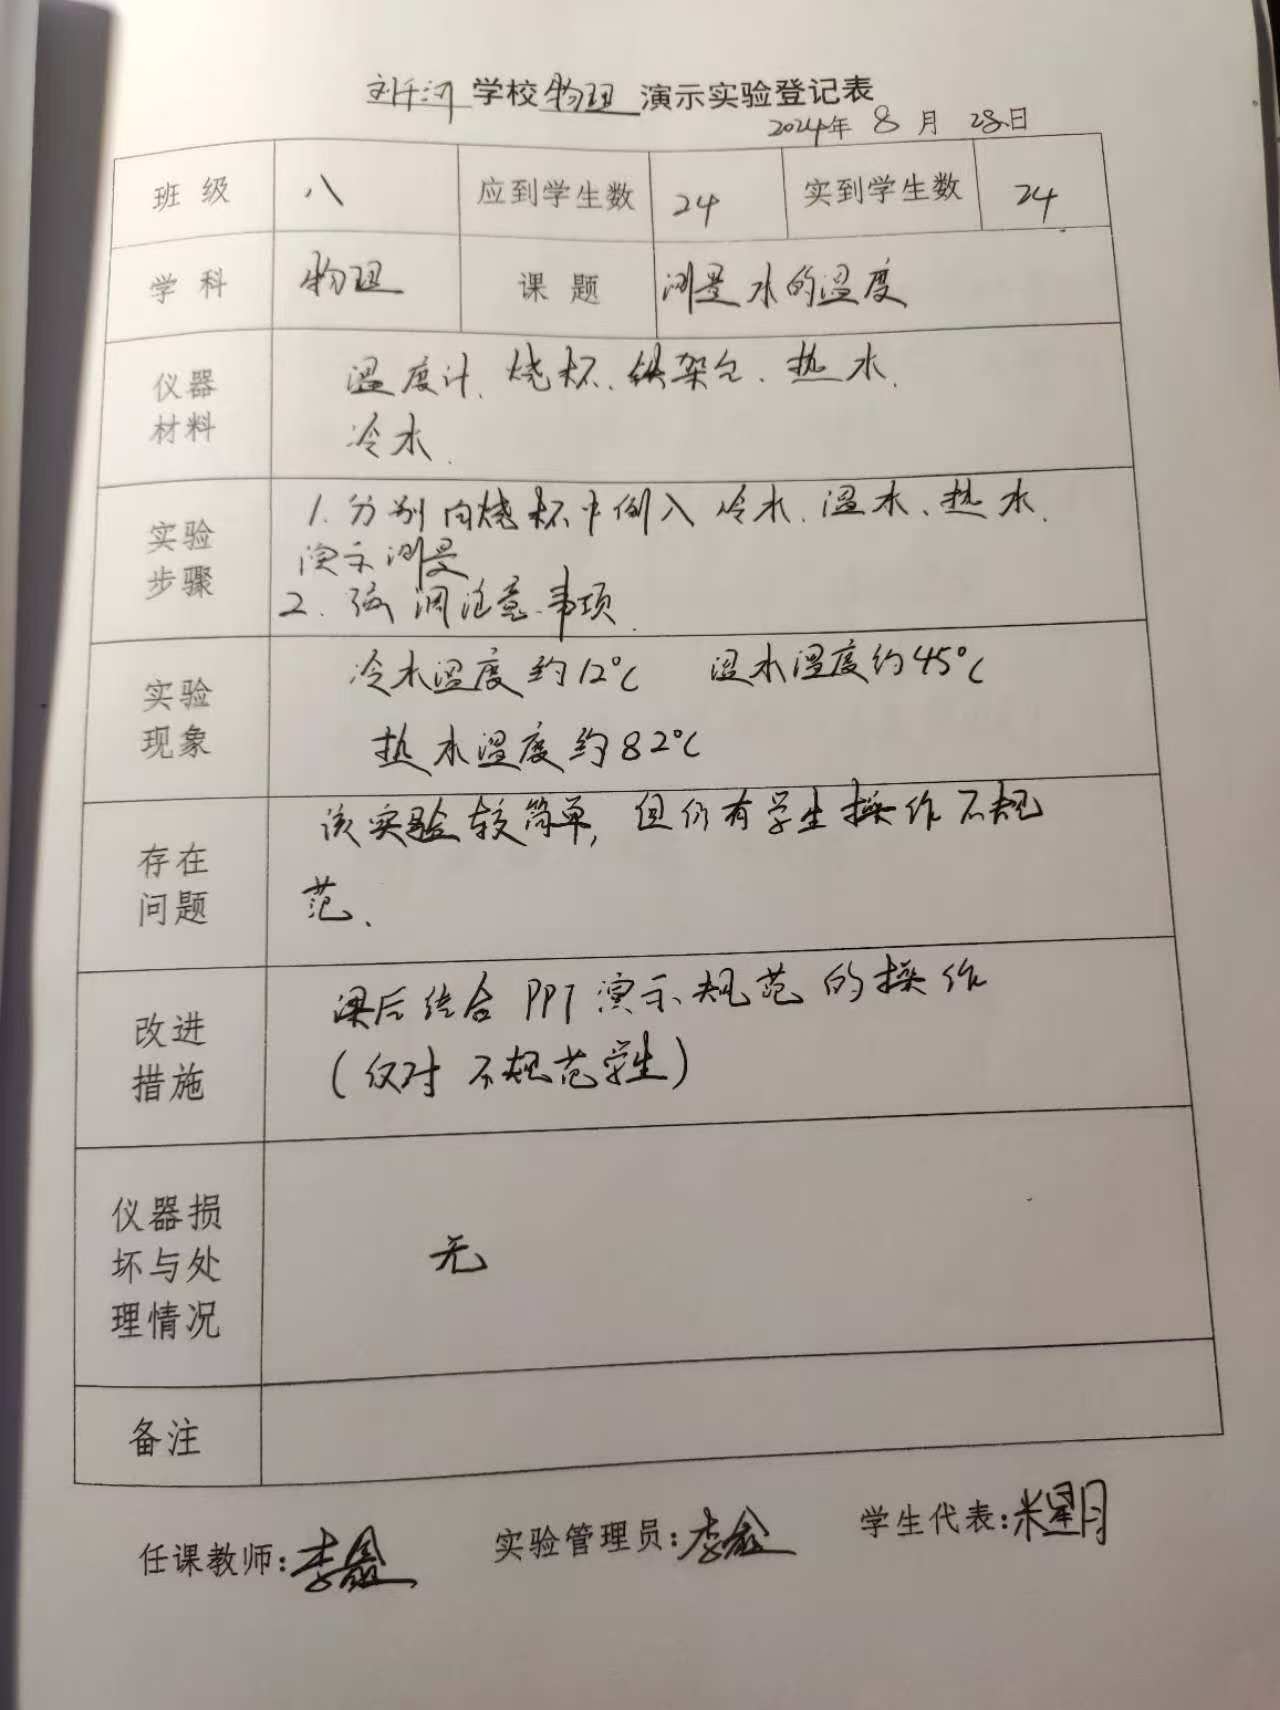 学校 物理 演示实验登记表
2024年 8 月 28日
班 级 八 应到学生数 24 实到学生数 24
学 科 物理 课 题 测量水的温度
仪器
材料
温度计、烧杯、铁架台、热水、
冷水.
实验
步骤
1. 分别向烧杯中倒入冷水、温水、热水、
演示测量
2. 强调注意事项.
实验
现象
冷水温度约12℃ 温水温度约45℃
热水温度约82℃
存在
问题
该实验较简单,但仍有学生操作不规
范、
改进
措施
课后结合PPT演示规范的操作
(仅对不规范学生)
仪器损
坏与处
理情况
无
备注
任课教师:李鑫 实验管理员:李鑫 学生代表: